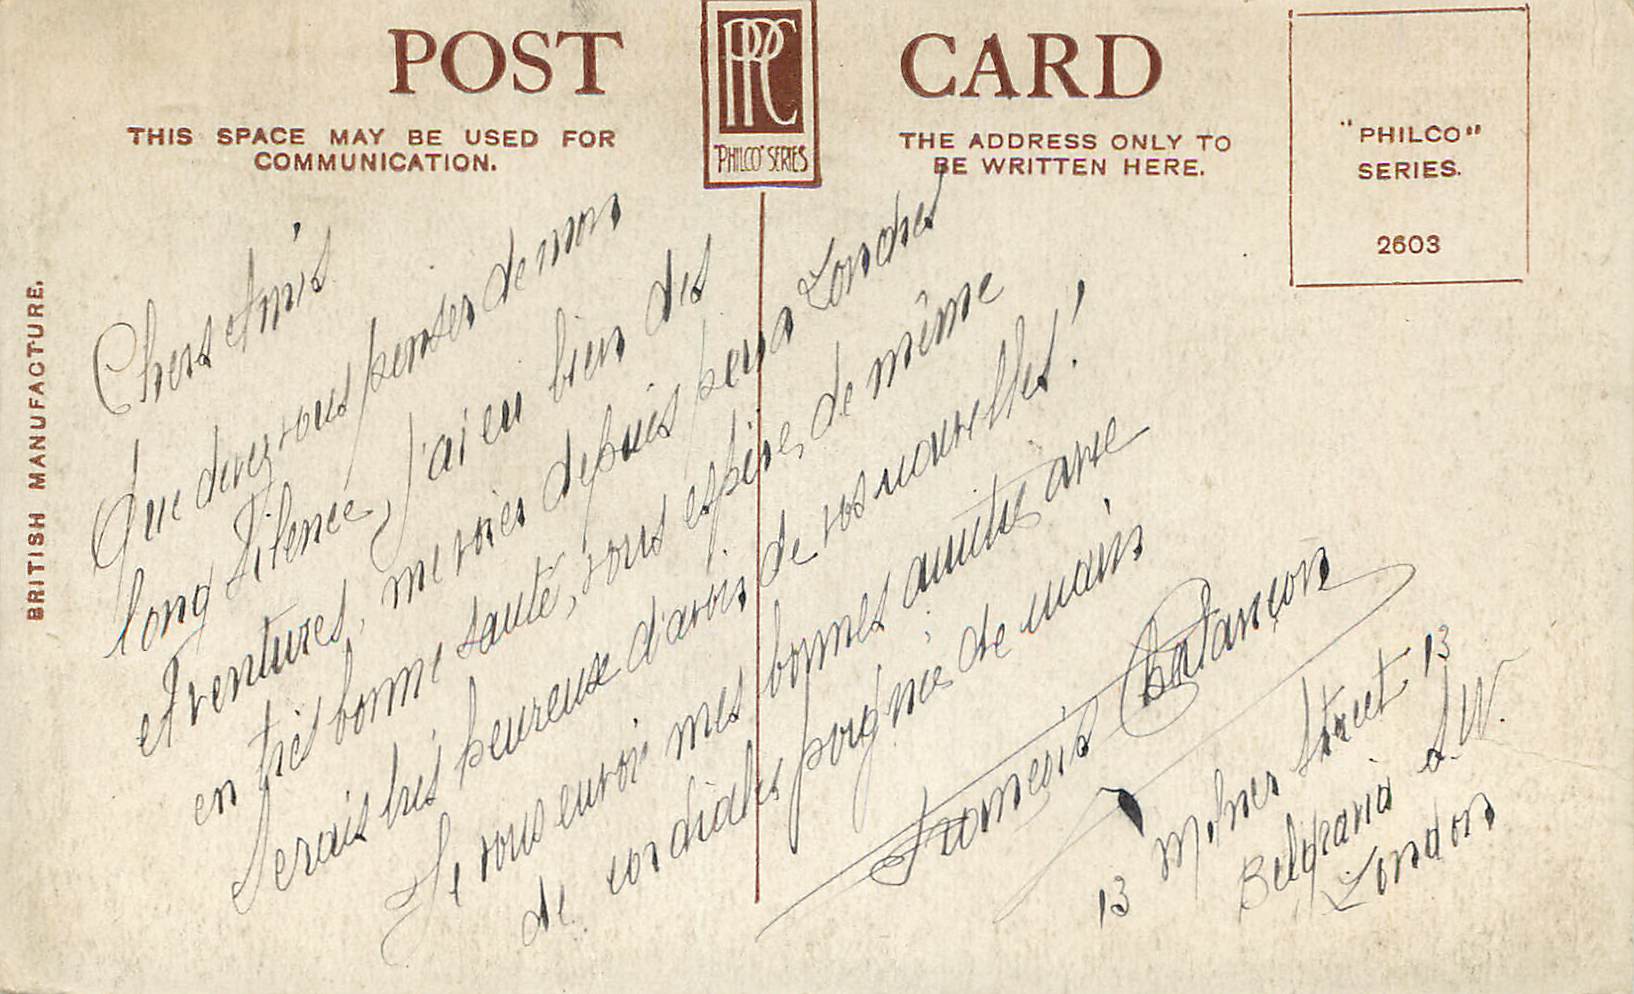 POST CARD
THIS SPACE MAY BE USED FOR
COMMUNICATION.
PPC
"PHILCO" SERIES
THE ADDRESS ONLY TO
BE WRITTEN HERE.
"PHILCO"
SERIES.
2603
BRITISH MANUFACTURE.
Chers Amis
Que devez vous penser de mon
long silence, j'ai eu bien des
aventures, me voici depuis peu a Londres
en très bonne santé, vous espère, de même
Serais très heureuse d'avoir de vos nouvelles!
Je vous envoi mes bonnes amitiés avec
de cordiales poignée de main
13
13 Milner Street
Belgravia S.W.
London